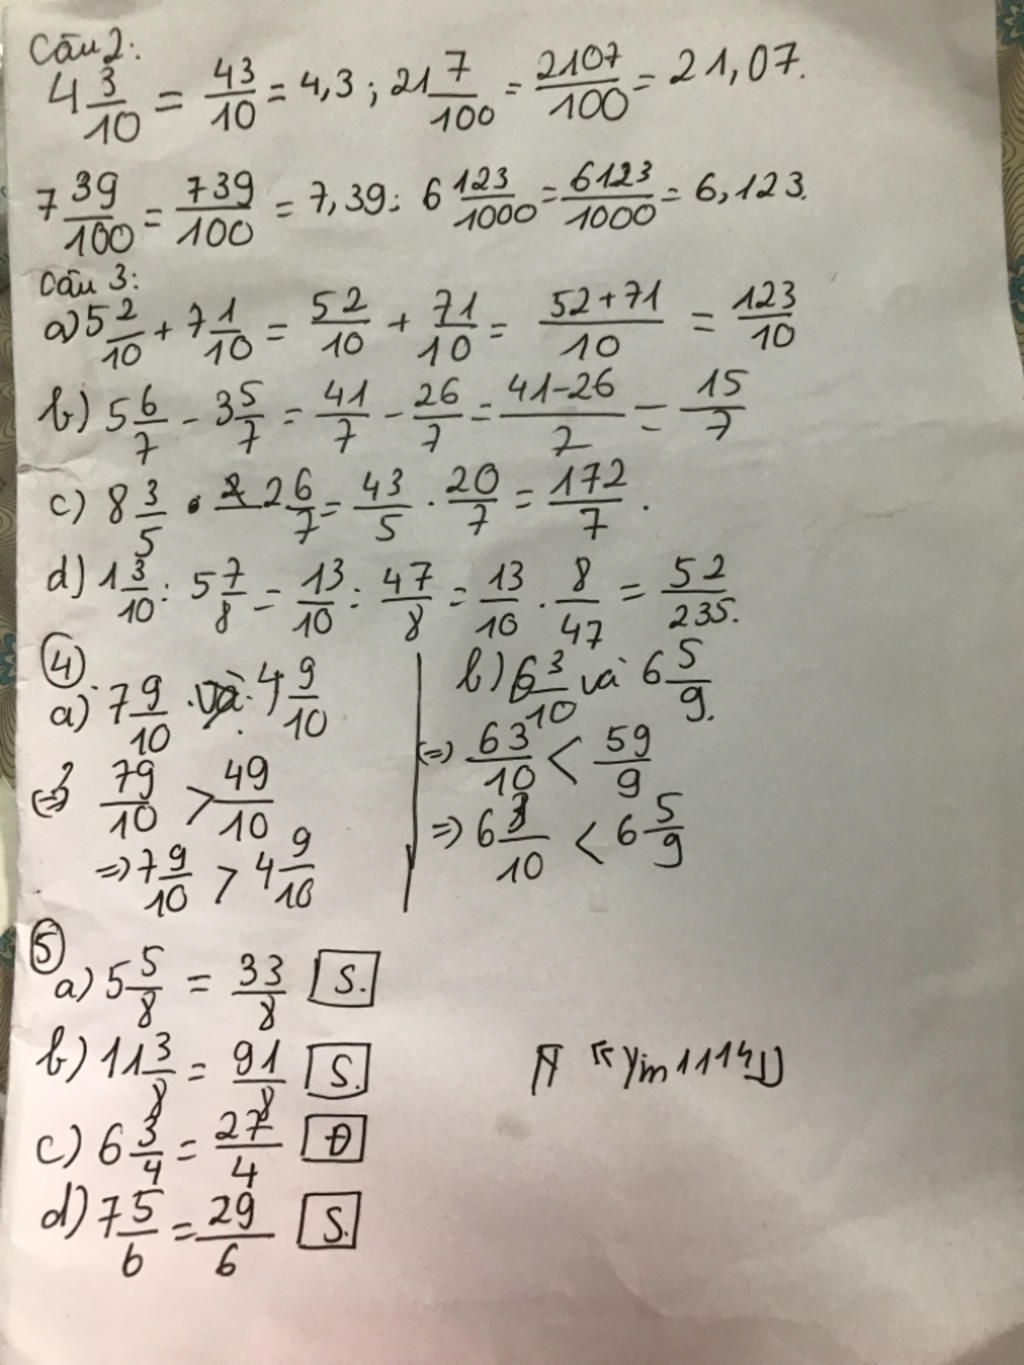 Câu 2:
4 3/10 = 43/10 = 4,3 ; 21 7/100 = 2107/100 = 21,07.
7 39/100 = 739/100 = 7,39 ; 6 123/1000 = 6123/1000 = 6,123.
Câu 3:
a) 5 2/10 + 7 1/10 = 52/10 + 71/10 = 52+71/10 = 123/10
b) 5 6/7 - 3 5/7 = 41/7 - 26/7 = 41-26/7 = 15/7
c) 8 3/5 . 2 6/7 = 43/5 . 20/7 = 172/7 .
d) 1 3/10 : 5 7/8 = 13/10 : 47/8 = 13/10 . 8/47 = 52/235.
4
a) 7 9/10 và 4 9/10
=> 79/10 > 49/10
=> 7 9/10 > 4 9/10
b) 6 3/10 và 6 5/9.
=> 63/10 < 59/9
=> 6 3/10 < 6 5/9
5
a) 5 5/8 = 33/8 S.
b) 11 3/8 = 91/8 S.
c) 6 3/4 = 27/4 Đ
d) 7 5/6 = 29/6 S.